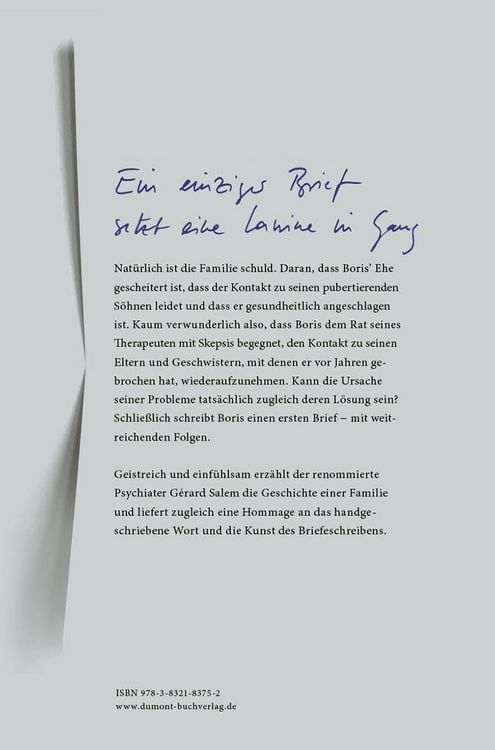 Ein einziger Brief
setzt eine Lawine in Gang
Natürlich ist die Familie schuld. Daran, dass Boris’ Ehe
gescheitert ist, dass der Kontakt zu seinen pubertierenden
Söhnen leidet und dass er gesundheitlich angeschlagen
ist. Kaum verwunderlich also, dass Boris dem Rat seines
Therapeuten mit Skepsis begegnet, den Kontakt zu seinen
Eltern und Geschwistern, mit denen er vor Jahren ge-
brochen hat, wiederaufzunehmen. Kann die Ursache
seiner Probleme tatsächlich zugleich deren Lösung sein?
Schließlich schreibt Boris einen ersten Brief – mit weit-
reichenden Folgen.
Geistreich und einfühlsam erzählt der renommierte
Psychiater Gérard Salem die Geschichte einer Familie
und liefert zugleich eine Hommage an das handge-
schriebene Wort und die Kunst des Briefeschreibens.
ISBN 978-3-8321-8375-2
www.dumont-buchverlag.de